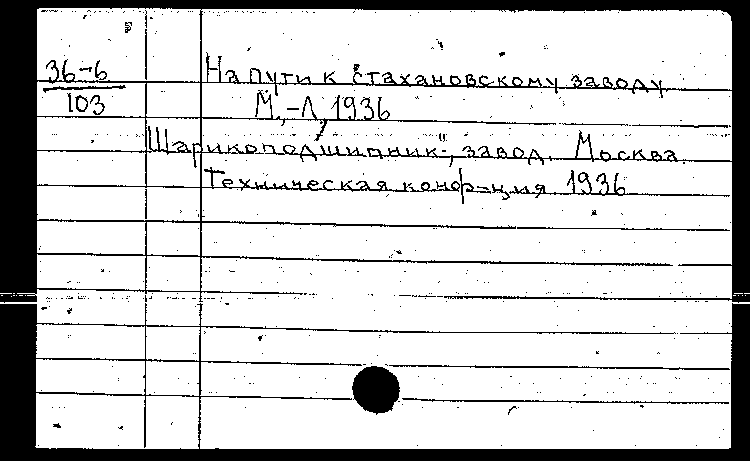 36-6
103
На пути к стахановскому заводу
М.,-Л, 1936
Шарикоподшипник-, завод. Москва.
Техническая конф-ция 1936